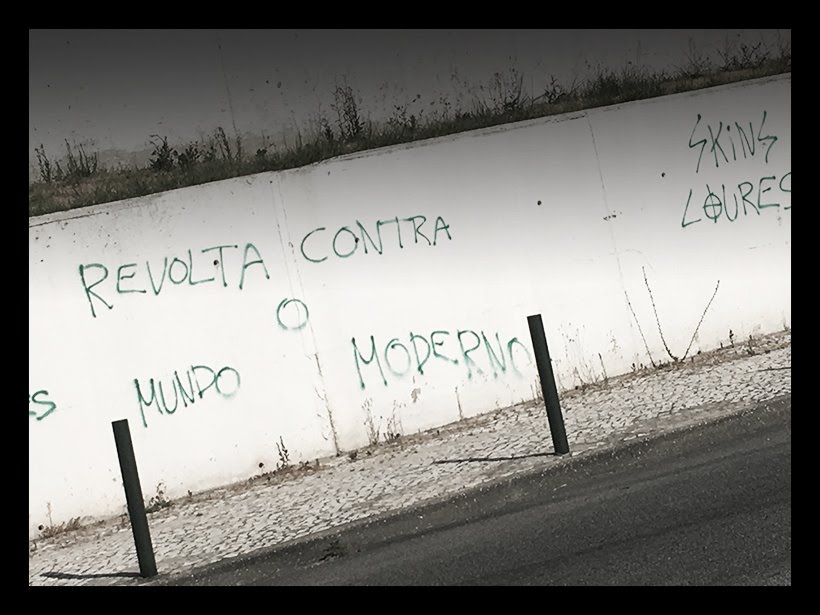 REVOLTA CONTRA
O
MUNDO MODERNO
SKINS
LOURES